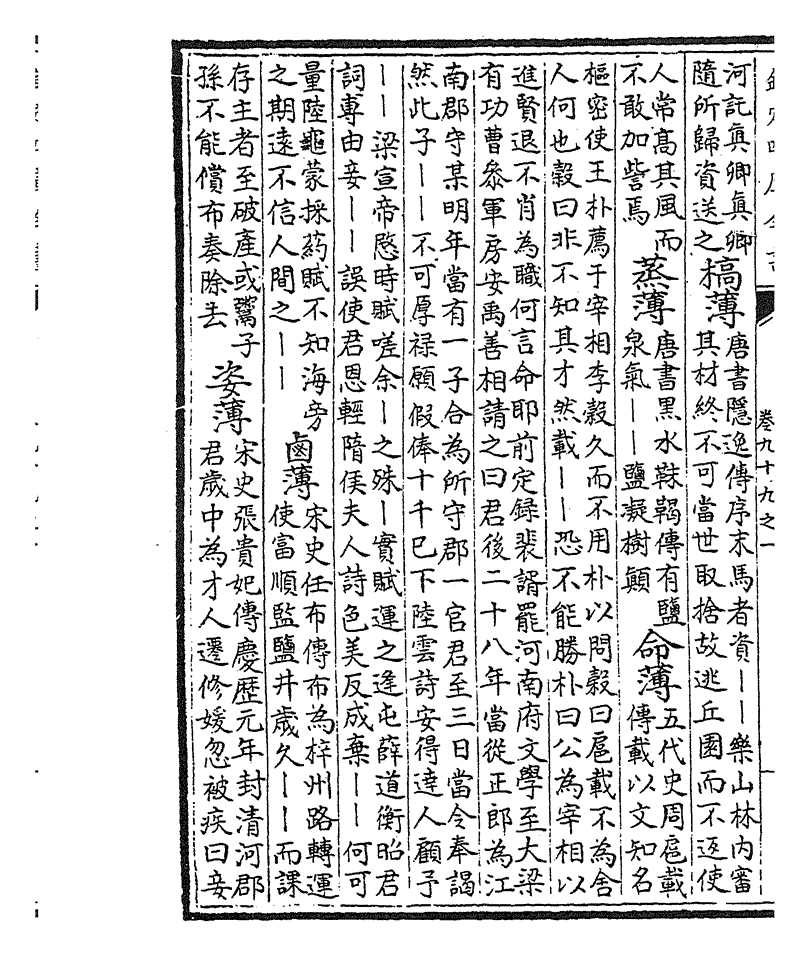 卷九十九之一
河記真卿真卿
隨所歸資送之
槁薄
唐書隱逸傳序末馬者資丨丨樂山林内審
其材終不可當世取捨故逃丘園而不返使
人常髙其風而
不敢加訾焉
蒸薄
唐書黑水靺鞨傳有鹽
泉氣丨丨鹽凝樹顛
命薄
五代史周扈載
傳載以文知名
樞密使王朴薦于宰相李穀久而不用朴以問穀曰扈載不為舍
人何也穀曰非不知其才然載丨丨恐不能勝朴曰公為宰相以
進賢退不肖為職何言命耶前定錄裴諝罷河南府文學至大梁
有功曹叅軍房安禹善相請之曰君後二十八年當從正郎為江
南郡守某明年當有一子合為所守郡一官君至三日當令奉謁
然此子丨丨不可厚禄願假俸十千已下陸雲詩安得達人顧予
丨丨梁宣帝愍時賦嗟余丨之殊丨實賦運之逢屯薛道衡昭君
詞專由妾丨丨誤使君恩輕隋侯夫人詩色美反成棄丨丨何可
量陸龜蒙採葯賦不知海旁
之期逺不信人間之丨丨
鹵薄
宋史任布傳布為梓州路轉運
使富順監鹽井歲久丨丨而課
存主者至破産或鬻子
孫不能償布奏除去
姿薄
宋史張貴妃傳慶歴元年封清河郡
君歲中為才人遷修媛忽被疾曰妾